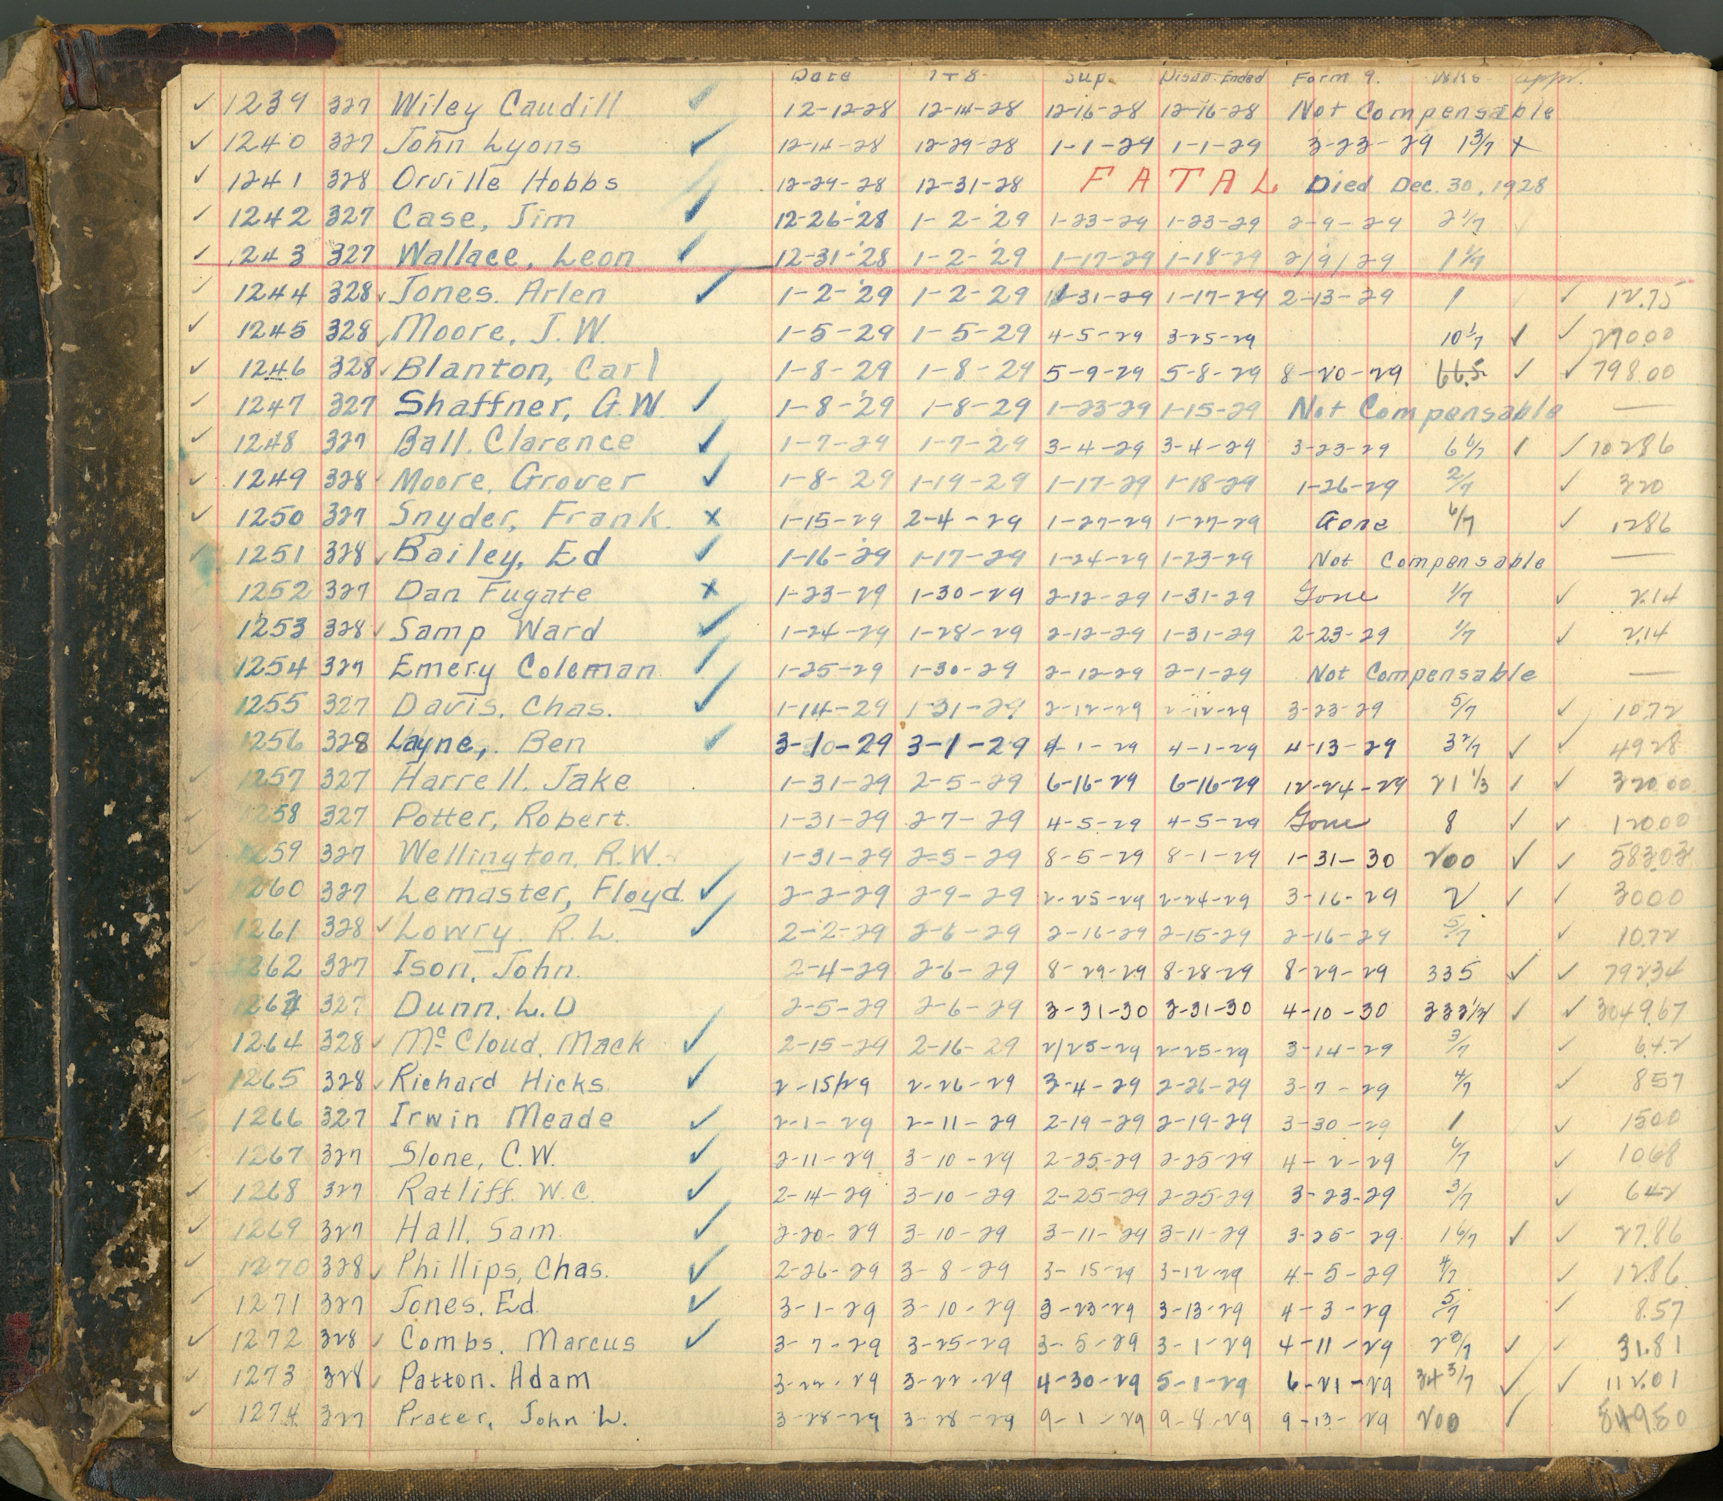 Date 7+8 Sup. Disab. Ended Form 9. Wks appr.
✓ 1239 327 Wiley Caudill ✓ 12-12-28 12-14-28 12-16-28 12-16-28 Not Compensable
✓ 1240 327 John Lyons ✓ 12-14-28 12-29-28 1-1-29 1-1-29 3-23-29 1 3/7 x
✓ 1241 328 Orville Hobbs ✓ 12-29-28 12-31-28 FATAL Died Dec. 30, 1928
✓ 1242 327 Case, Jim ✓ 12-26-'28 1-2-'29 1-23-29 1-23-29 2-9-29 2 1/7
✓ 1243 327 Wallace, Leon ✓ 12-31-'28 1-2-'29 1-17-29 1-18-29 2/9/29
✓ 1244 328 ✓ Jones. Arlen ✓ 1-2-'29 1-2-29 1-17-29 2-13-29 1 ✓ 12.75
✓ 1245 328 ✓ Moore, J.W. 1-5-29 1-5-29 4-5-29 3-25-29 10 1/7 ✓ ✓ 290.00
✓ 1246 328 ✓ Blanton, Carl 1-8-29 1-8-29 5-9-29 5-8-29 8-20-29 66.5 ✓ ✓ 798.00
✓ 1247 327 Shaffner, G.W. ✓ 1-8-'29 1-8-29 1-23-29 1-15-29 Not Compensable —
✓ 1248 327 Ball. Clarence ✓ 1-7-29 1-7-29 3-4-29 3-4-29 3-23-29 6 6/7 ✓ ✓ 10286
✓ 1249 328 ✓ Moore, Grover ✓ 1-8-29 1-19-29 1-17-29 1-18-29 1-26-29 2/7 ✓ 320
✓ 1250 327 Snyder, Frank. x 1-15-29 2-4-29 1-27-29 1-27-29 Gone 6/7 ✓ 1286
✓ 1251 328 ✓ Bailey, Ed ✓ 1-16-29 1-17-29 1-24-29 1-23-29 Not Compensable —
✓ 1252 327 Dan Fugate x 1-23-29 1-30-29 2-12-29 1-31-29 Gone 1/7 ✓ 2.14
✓ 1253 328 ✓ Samp Ward ✓ 1-24-29 1-28-29 2-12-29 1-31-29 2-23-29 1/7 ✓ 2.14
✓ 1254 327 Emery Coleman ✓ 1-25-29 1-30-29 2-12-29 2-1-29 Not Compensable —
✓ 1255 327 Davis, Chas. ✓ 1-14-29 1-31-29 2-12-29 2-12-29 3-23-29 5/7 ✓ 10.72
1256 328 Layne, Ben ✓ 3-1-29 3-1-29 4-1-29 4-1-29 4-13-29 3 2/7 ✓ ✓ 49.28
✓ 1257 327 Harrell. Jake 1-31-29 2-5-29 6-16-29 6-16-29 12-24-29 21 1/3 ✓ ✓ 320.00
✓ 1258 327 Potter, Robert. 1-31-29 2-7-29 4-5-29 4-5-29 Gone 8 ✓ ✓ 120.00
✓ 1259 327 Wellington, R.W. 1-31-29 2-5-29 8-5-29 8-1-29 1-31-30 200 ✓ ✓
✓ 1260 327 Lemaster, Floyd ✓ 2-2-29 2-9-29 2-25-29 2-24-29 3-16-29 2 ✓ ✓ 3000
✓ 1261 328 ✓ Lowry. R.L. ✓ 2-2-29 2-6-29 2-16-29 2-15-29 2-16-29 5/7 ✓ 10.72
1262 327 Ison, John. 2-4-29 2-6-29 8-29-29 8-28-29 8-29-29 335 ✓ ✓ 79234
✓ 1263 327 Dunn, L.D 2-5-29 2-6-29 3-31-30 3-31-30 4-10-30 ✓ ✓ 3049.67
✓ 1264 328 ✓ McCloud. Mack ✓ 2-15-29 2-16-29 2/25-29 2-25-29 3-14-29 3/7 ✓ 6.42
✓ 1265 328 ✓ Richard Hicks ✓ 2-15/29 2-26-29 3-4-29 2-26-29 3-7-29 4/7 ✓ 857
✓ 1266 327 Irwin Meade ✓ 2-1-29 2-11-29 2-19-29 2-19-29 3-30-29 1 ✓ 1500
1267 327 Slone, C.W. ✓ 2-11-29 3-10-29 2-25-29 2-25-29 4-2-29 6/7 ✓ 1068
✓ 1268 327 Ratliff. W.C. ✓ 2-14-29 3-10-29 2-25-29 2-25-29 3-23-29 3/7 ✓ 642
✓ 1269 327 Hall. Sam. ✓ 2-20-29 3-10-29 3-11-29 3-11-29 3-25-29 1 6/7 ✓ ✓ 27.86
✓ 1270 328 ✓ Phillips, Chas. ✓ 2-26-29 3-8-29 3-15-29 3-12-29 4-5-29 4/7 ✓ 12.86
✓ 1271 327 Jones, Ed. ✓ 3-1-29 3-10-29 3-23-29 3-13-29 4-3-29 5/7 ✓ 8.57
✓ 1272 328 ✓ Combs. Marcus ✓ 3-7-29 3-25-29 3-5-29 3-1-29 4-11-29 ✓ ✓ 31.81
✓ 1273 328 ✓ Patton. Adam 3-22-29 3-22-29 4-30-29 5-1-29 6-21-29 34 3/7 ✓ ✓ 112.01
✓ 1274 327 Prater, John W. 3-28-29 3-28-29 9-1-29 9-8-29 9-13-29 200 ✓ 549.50